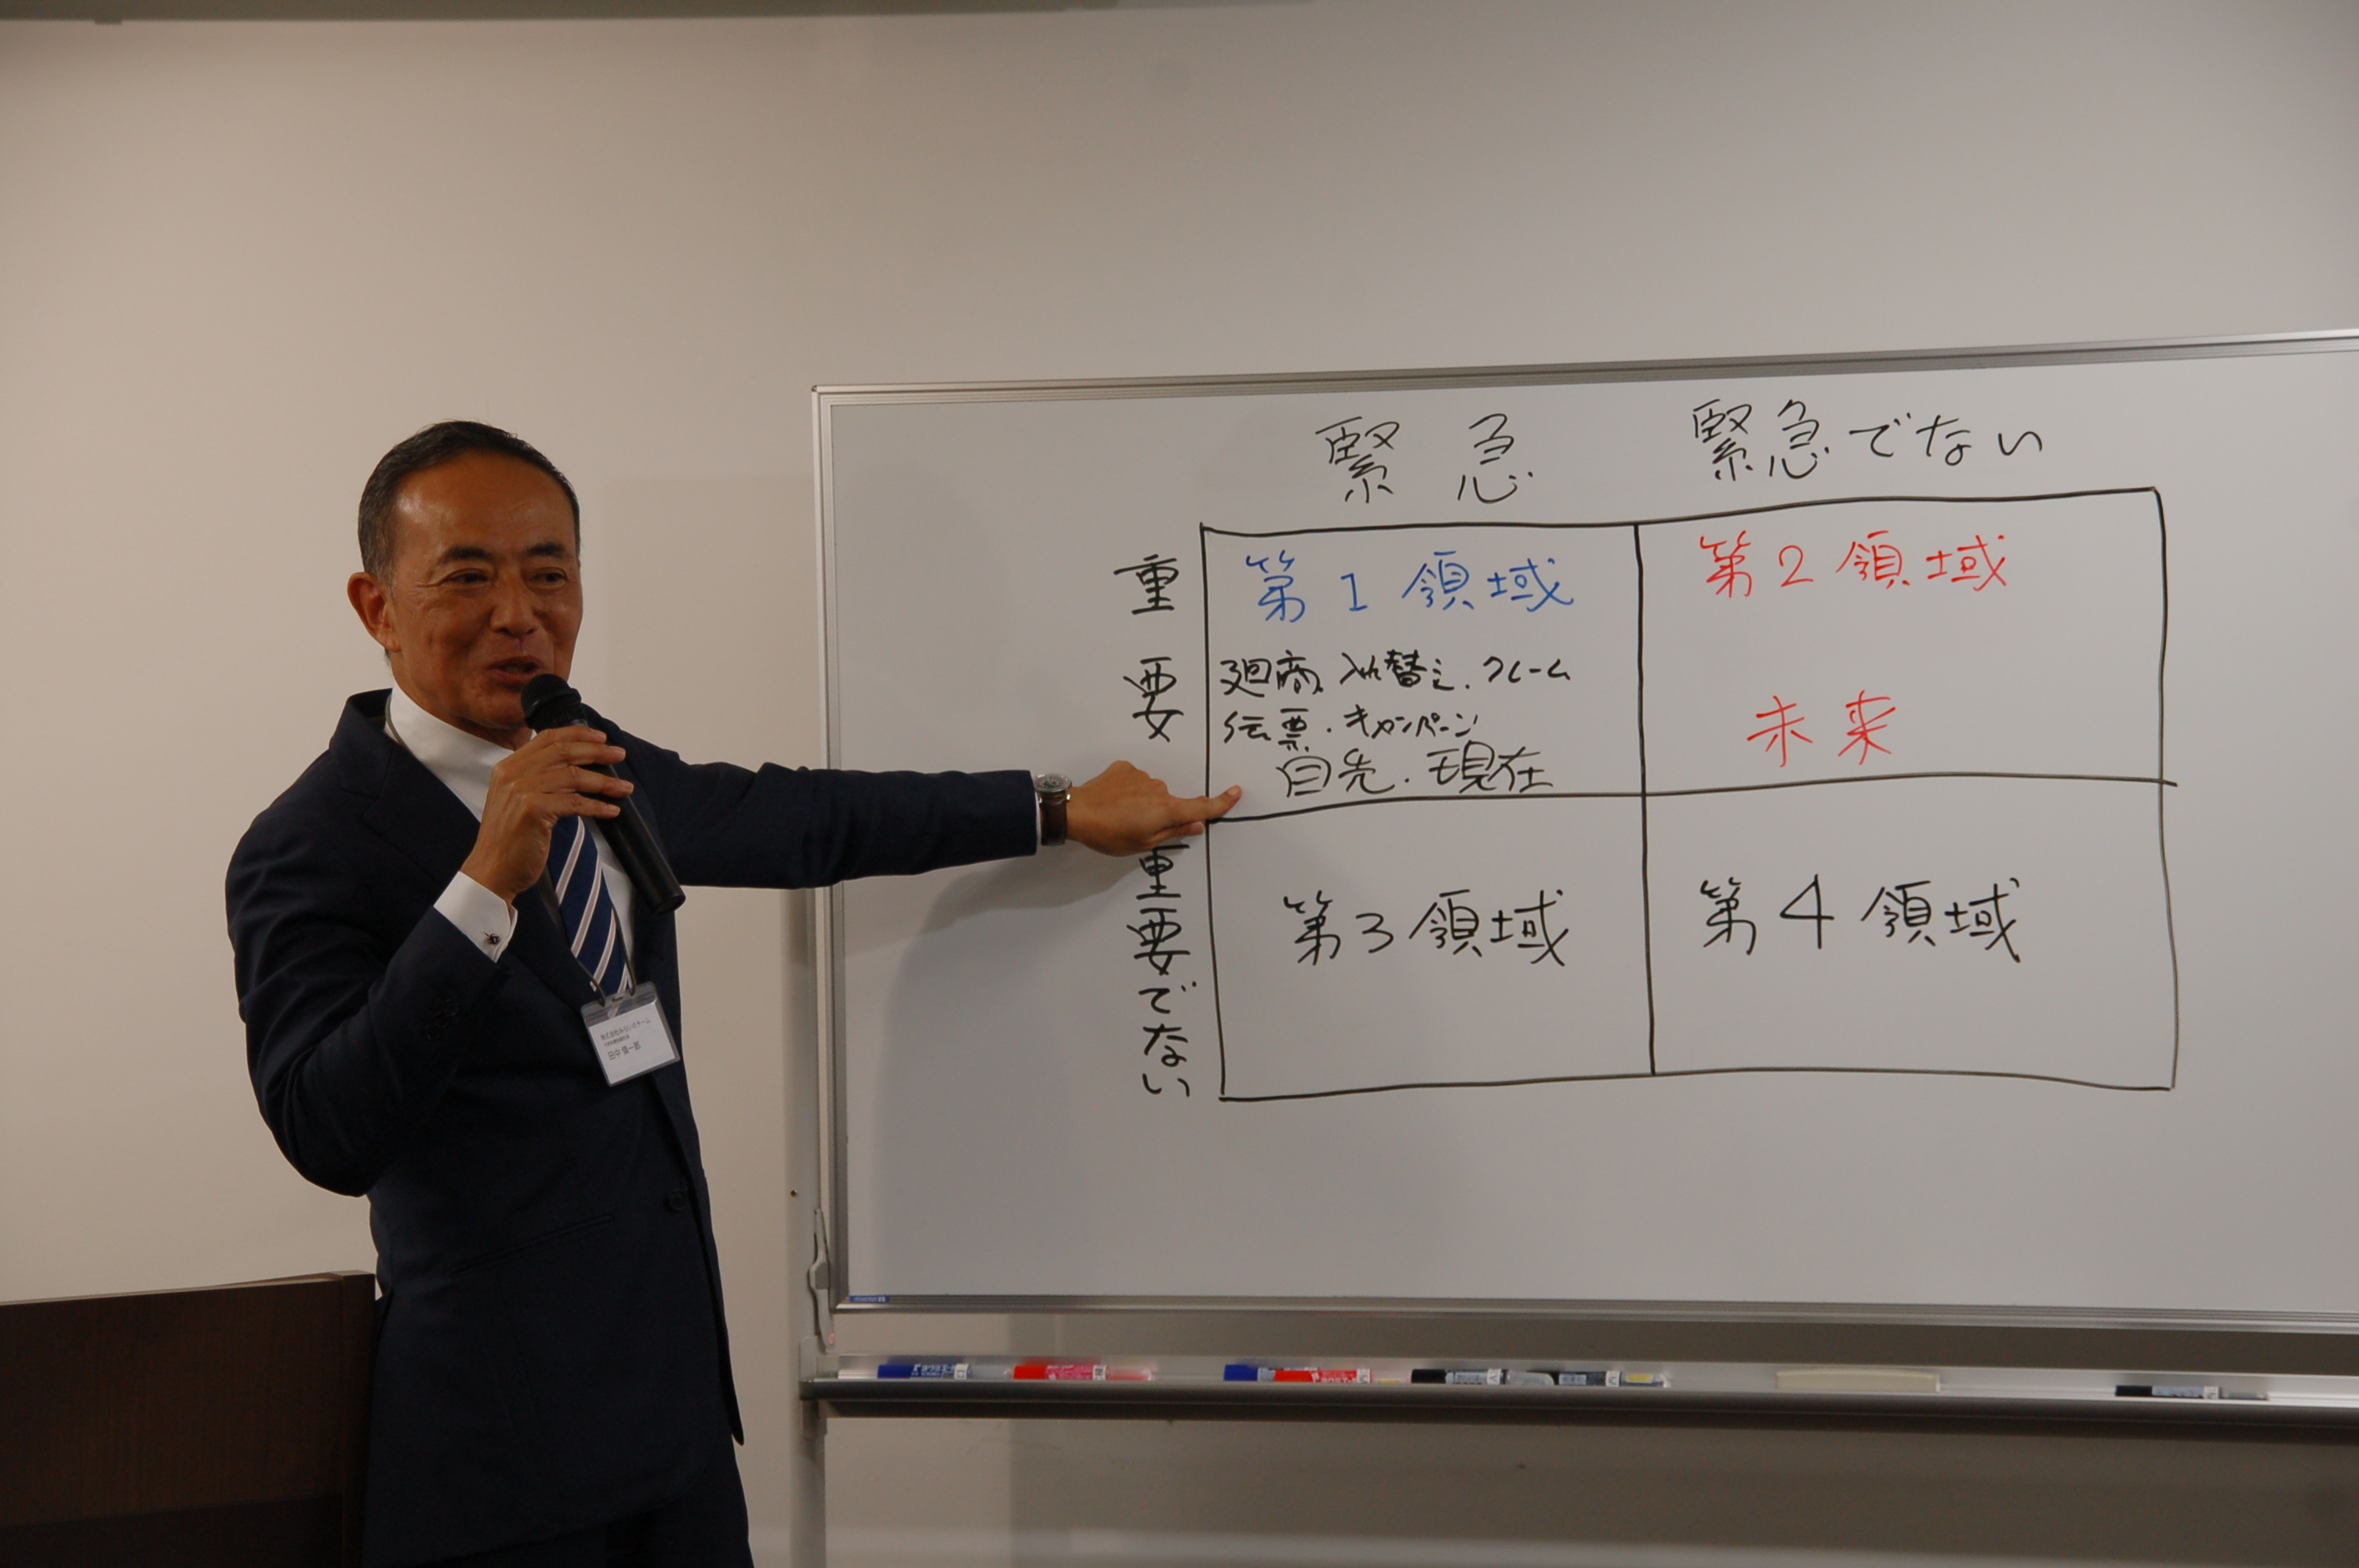 緊急 緊急でない
重要
第1領域
廻商.入れ替え.クレーム
伝票.キャンペーン
目先.現在
第2領域
未来
重要でない
第3領域
第4領域
田中